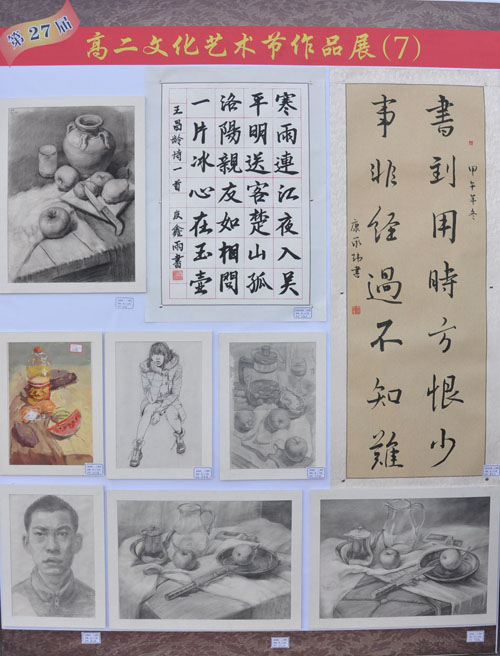 第27届
高二文化艺术节作品展(7)
寒雨連江夜入吴
平明送客楚山孤
洛陽親友如相問
一片冰心在玉壺
王昌龄诗一首 鑫雨書
書到用時方恨少
甲午年冬
事非經過不知難